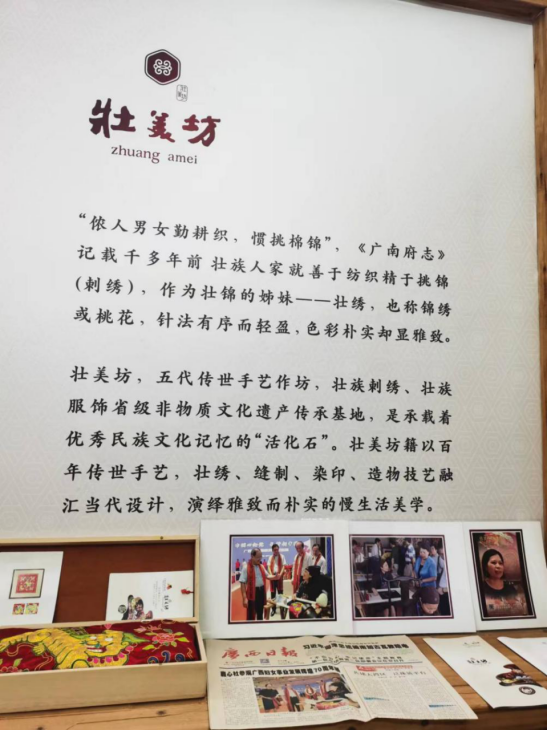 壮美坊
zhuang amei
“侬人男女勤耕织，惯挑棉锦”，《广南府志》
记载千多年前壮族人家就善于纺织精于挑锦
（刺绣），作为壮锦的姊妹——壮绣，也称锦绣
或桃花，针法有序而轻盈，色彩朴实却显雅致。
壮美坊，五代传世手艺作坊，壮族刺绣、壮族
服饰省级非物质文化遗产传承基地，是承载着
优秀民族文化记忆的“活化石”。壮美坊籍以百
年传世手艺，壮绣、缝制、染印、造物技艺融
汇当代设计，演绎雅致而朴实的慢生活美学。
广西日报